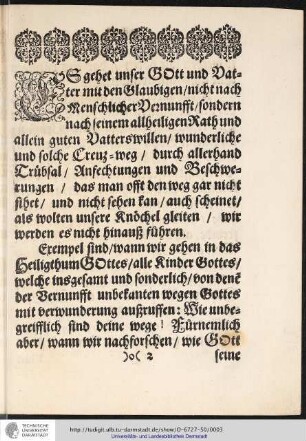 ES gehet unser GOtt und Vat-
ter mit den Glaubigen/ nicht nach
Menschlicher Vernunfft/ sondern
nach seinem allheiligen Rath und
allein guten Vatterswillen/ wunderliche
und solche Creuz-weg/ durch allerhand
Trübsal/ Anfechtungen und Beschwe-
rungen/ das man offt den weg gar nicht
sihet/ und nicht sehen kan/ auch scheinet/
als wolten unsere Knöchel gleiten/ wir
werden es nicht hinauß führen.
Exempel sind/ wann wir gehen in das
Heiligthum GOttes/ alle Kinder Gottes/
welche insgesamt und sonderlich/ von denē
der Vernunfft unbekanten wegen Gottes
mit verwunderung außruffen: Wie unbe-
greifflich sind deine wege! Fürnemlich
aber/ wann wir nachforschen/ wie GOtt
)o( 2 seine
TECHNISCHE
UNIVERSITÄT
DARMSTADT
http://tudigit.ulb.tu-darmstadt.de/show/O-6727-50/0003
Universitäts- und Landesbibliothek Darmstadt